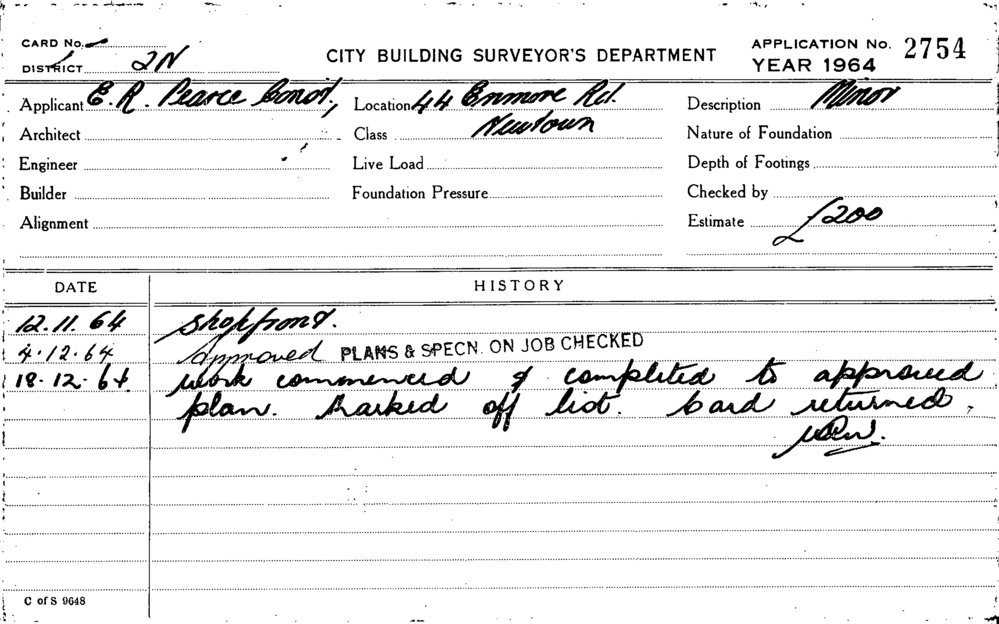 CARD No.
DISTRICT 2N
CITY BUILDING SURVEYOR'S DEPARTMENT
APPLICATION No. 2754
YEAR 1964
Applicant E. R. Pearce Const,
Location 44 Enmore Rd.
Description Minor
Architect
Class Newtown
Nature of Foundation
Engineer
Live Load
Depth of Footings
Builder
Foundation Pressure
Checked by
Alignment
Estimate £200
DATE HISTORY
12.11.64 Shopfront.
4.12.64 Approved PLANS & SPECN. ON JOB CHECKED
18.12.64 Work commenced & completed to approved
plan. Marked off list. Card returned.
C of S 9648